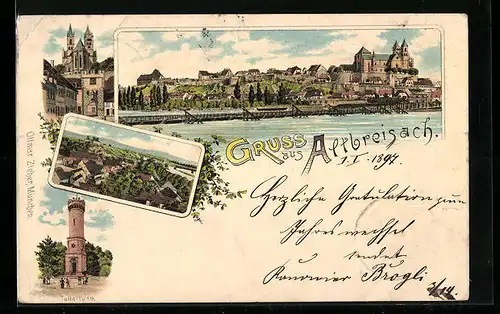 GRUSS aus Altbreisach.
1.I. 1897
Herzliche Gratulation zum
Jahreswechsel
sendet
Kanonier Brogli
Ottmar Zieher, München
Tullaturm